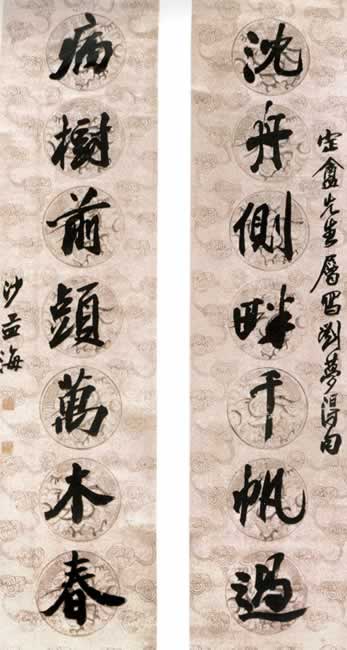 定盦先生屬寫劉夢得句
沈舟側畔千帆過
病樹前頭萬木春
沙孟海